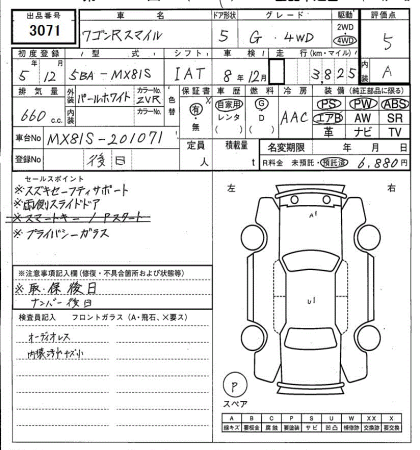 出品番号 車名 ドア形状 グレード 駆動 評価点
3071 ワゴンRスマイル 5 G・4WD 2WD 4WD 5
初度登録 型式 シフト 車検 走行(km・マイル) 内装
5 12 5BA-MX81S IAT 8年12月 3,825 A
排気量 外装 カラーNo. 色替 保証書 車歴 燃料 冷房 装備(純正部品に限る)
660 c.c. パールホワイト ZVR 有・無 自家用 レンタ ( ) G D ( ) AAC PS PW ABS
内装 カラーNo. エアB AW SR
革 ナビ TV
車台No MX81S-201071 定員 人 積載量 t 名変期限 年 月 日
登録No 後日 R料金 未預託・預託済 6,880円
セールスポイント
※スズキセーフティサポート
※両側スライドドア
※スマートキー/Pスタート
※プライバシーガラス
左 右
A1
U1
※注意事項記入欄(修復・不具合箇所および状態等)
※取・保後日
ナンバー後日
検査員記入欄 フロントガラス(A・飛石、×要ス)
オーディオレス
P
スペア
A B C P S U W X XX X
線キズ 要板金 腐蝕 要塗装 サビ 凹凸 補修跡 交換跡 要交換